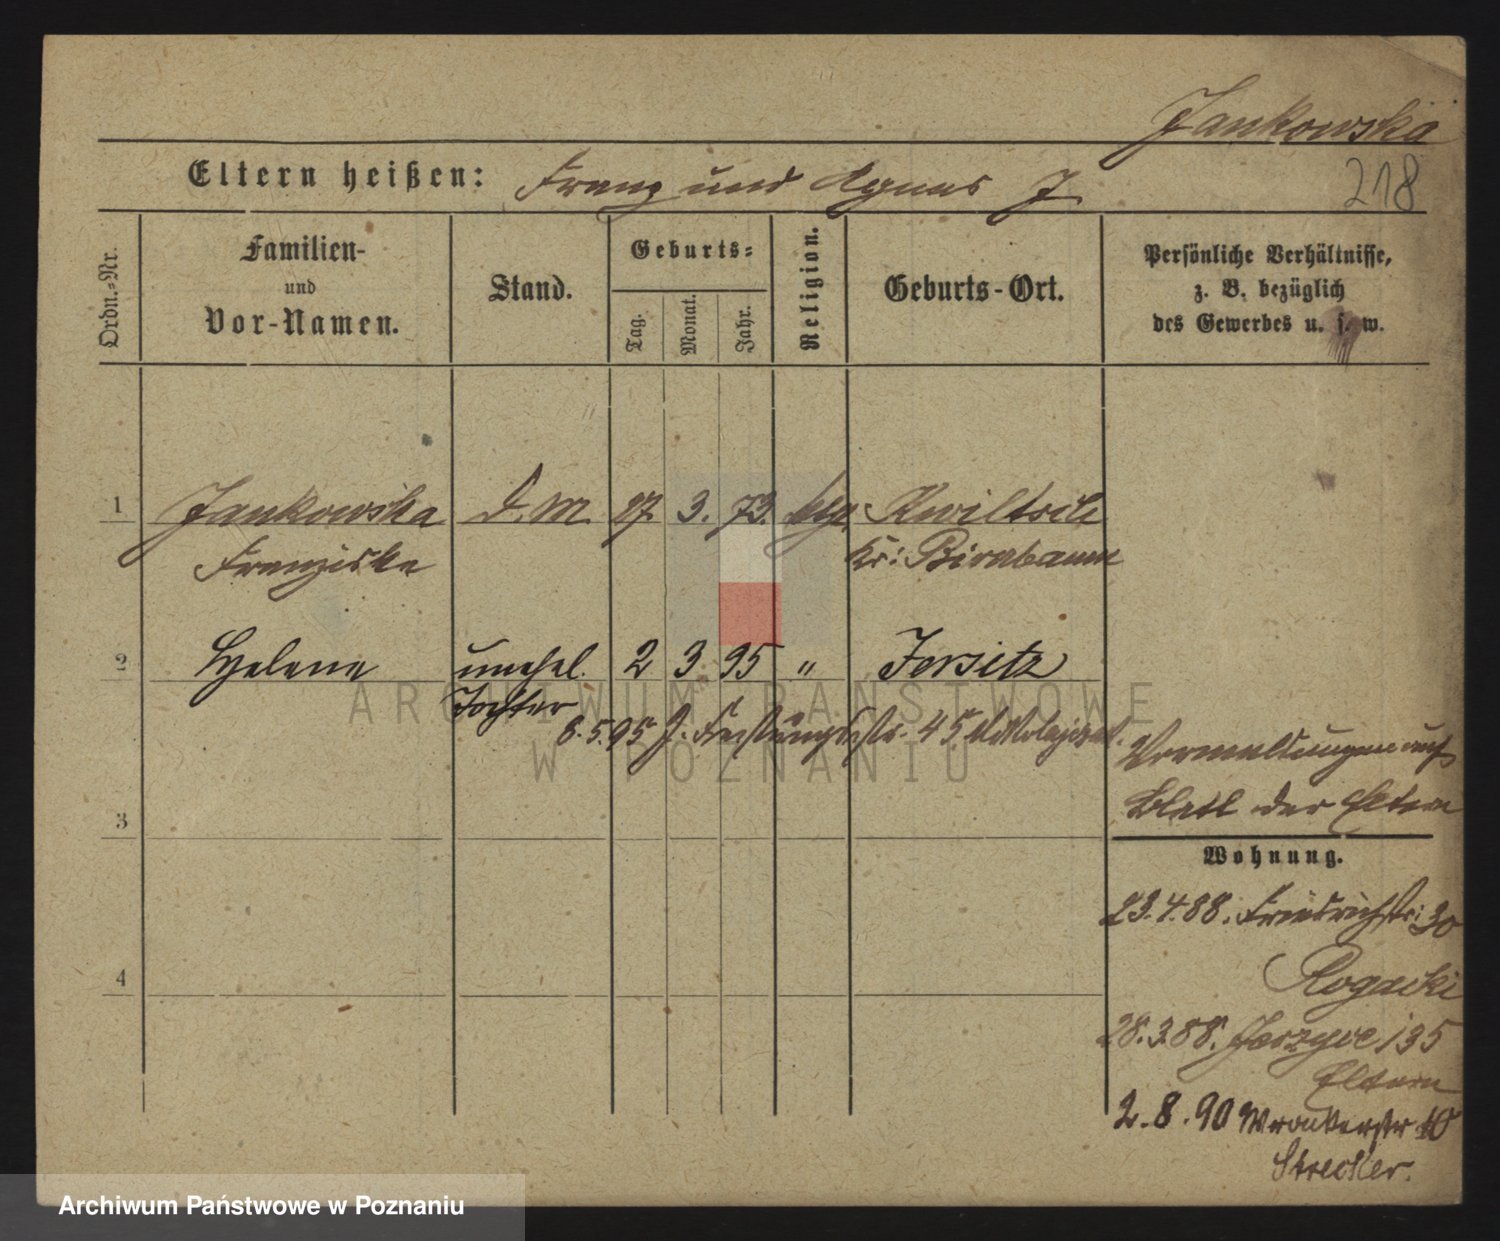 Jankowska
218
Eltern heißen: Franz und Agnes J.
Ordn.-Nr.
Familien-
und
Vor-Namen.
Stand.
Geburts-
Tag.
Monat.
Jahr.
Religion.
Geburts-Ort.
Persönliche Verhältnisse,
z. B. bezüglich
des Gewerbes u. s. w.
1 Jankowska D. M. 27. 3. 73. Kwiltsch
Franziska Kr: Birnbaum
2 Helene unehel. 2 3 95 " Jersitz
Tochter
6.5.95 J. 45
Vermeldungen auf
Blatt der Eltern
3
Wohnung.
23.4.88. Friedrichstr: 30
Rogacki
4
28.3.88. 135
Eltern
2.8.90 Wronkerstr 10
Strecker.
ARCHIWUM PAŃSTWOWE
W POZNANIU
Archiwum Państwowe w Poznaniu